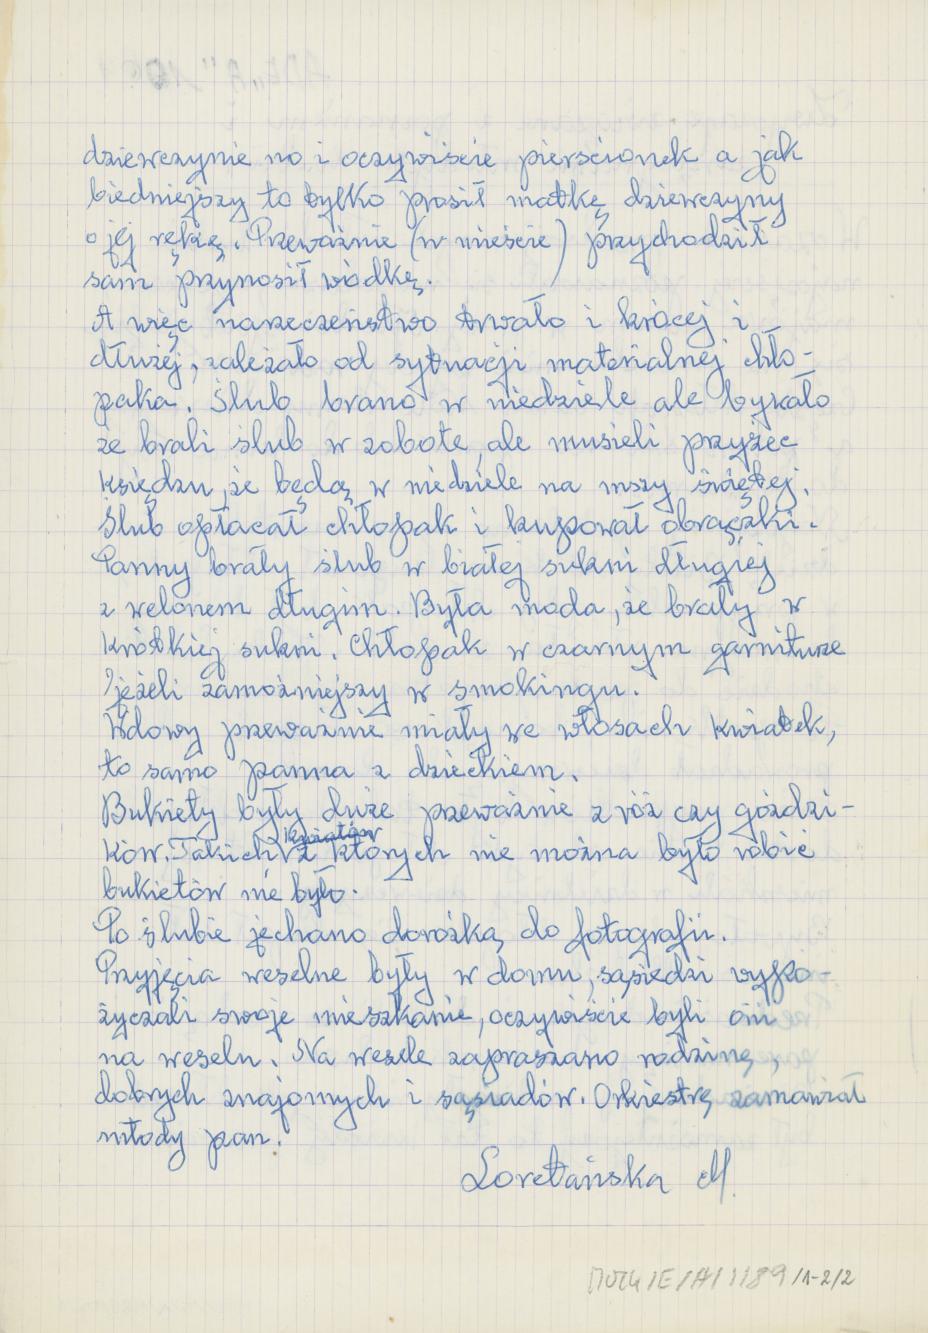 dziewczynie no i oczywiście pierścionek a jak
biedniejszy to tylko prosił matkę dziewczyny
o jej rękię. Przeważnie (w mieście) przychodził
sam przynosił wódkę.
A więc narzeczeństwo trwało i krócej i
dłużej, zależało od sytuacji materialnej chło-
paka. Ślub brano w niedziele ale bywało
że brali ślub w sobote, ale musieli przyżec
księdzu, że będą w niedziele na mszy świętej.
Ślub opłacał chłopak i kupował obrączki.
Panny brały ślub w białej sukni długiej
z welonem długim. Była moda, że brały w
krótkiej sukni. Chłopak w czarnym garniturze
jeżeli zamożniejszy w smokingu.
Wdowy przeważnie miały we włosach kwiatek,
to samo panna z dzieckiem.
Bukiety były duże przeważnie z róż czy goździ-
ków. Takich kwiatów z których nie można było robić
bukietów nie było.
Po ślubie jechano dorożką do fotografii.
Przyjęcia weselne były w domu, sąsiedzi wypo-
życzali swoje mieszkanie, oczywiście byli oni
na weselu. Na wesele zapraszano rodzinę,
dobrych znajomych i sąsiadów. Orkiestrę zamawiał
młody pan.
Loretańska M.
/E/A/1189/1-2/2